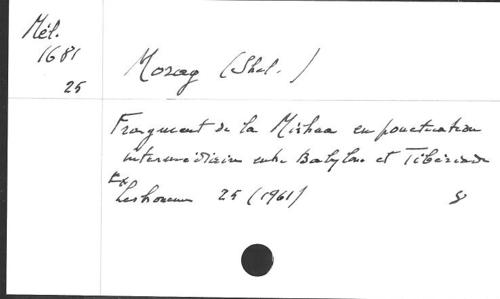 Mél.
1681
25
Morag (Shel.)
Fragment de la Mishna en ponctuation
intermédiaire entre Babylone et Tibériade
Ex Leshonenu 25 (1961) 8